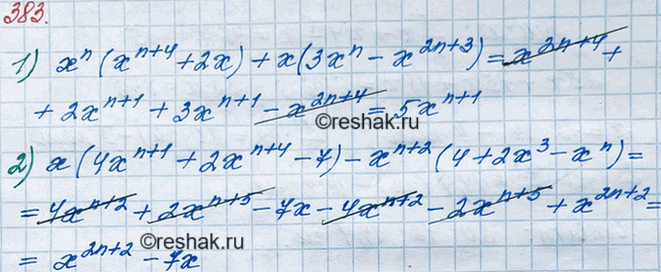 383.
1) xⁿ (xⁿ⁺⁴ + 2x) + x(3xⁿ − x²ⁿ⁺³) = x²ⁿ⁺⁴ +
+ 2xⁿ⁺¹ + 3xⁿ⁺¹ − x²ⁿ⁺⁴ = 5xⁿ⁺¹
©reshak.ru
2) x (4xⁿ⁺¹ + 2xⁿ⁺⁴ − 7) − xⁿ⁺² (4 + 2x³ − xⁿ) =
= 4xⁿ⁺² + 2xⁿ⁺⁵ − 7x − 4xⁿ⁺² − 2xⁿ⁺⁵ + x²ⁿ⁺² =
= x²ⁿ⁺² − 7x
©reshak.ru